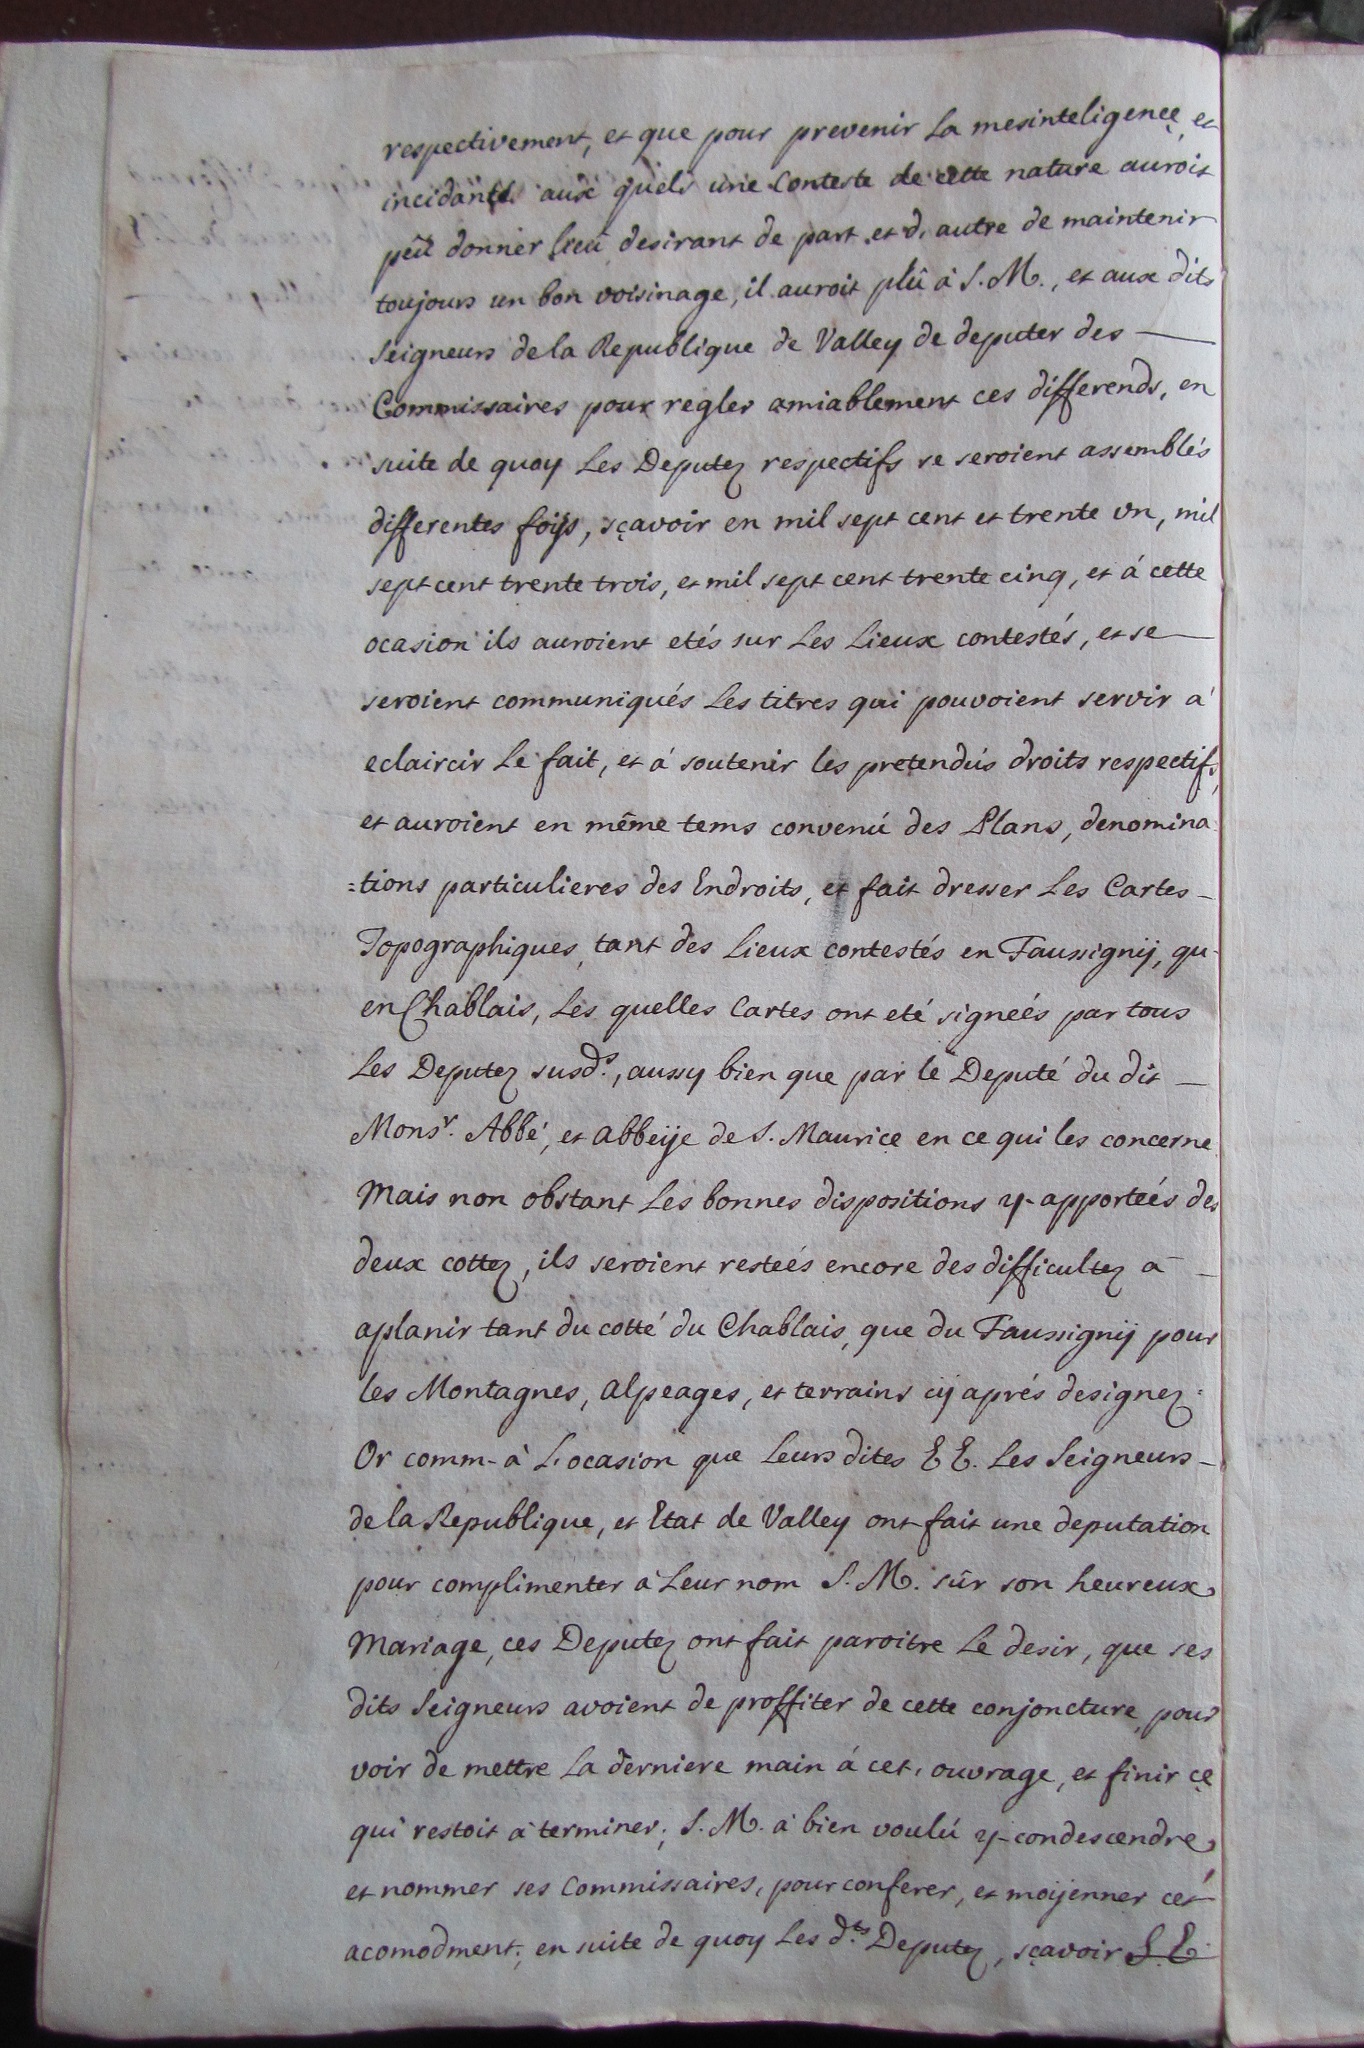 respectivement, et que pour prevenir La mesinteligence, et
incidants aux quels une Conteste de cette nature auroit
peû donner lieû desirant de part et d'autre de maintenir
toujours un bon voisinage, il auroit plû à S. M., et aux dits
Seigneurs de la Republique de Valley de deputer des —
Commissaires pour regler amiablement ces differends, en
suite de quoy Les Deputez respectifs se seroient assemblés
differentes foijs, sçavoir en mil sept cent et trente vn, mil
sept cent trente trois, et mil sept cent trente cinq, et á cette
ocasion ils auroient etés sur Les Lieux contestés, et se —
seroient communiqués Les titres qui pouvoient servir a'
eclaircir Le fait, et á soutenir les pretendús droits respectifs,
et auroient en même tems convenú des Plans, denomina-
=tions particulieres des Endroits, et fait dresser Les Cartes —
Topographiques, tant des Lieux contestés en Faussignij, qu'
en Chablais, Les quelles Cartes ont eté signeés par tous
Les Deputez susd.s, aussy bien que par le Deputé du dit —
Mons.r Abbé, et abbeije de S. Maurice en ce qui les concerne
Mais non obstant Les bonnes dispositions y apporteés des
deux cottez, ils seroient resteés encore des difficultez a —
aplanir tant du cotté du Chablais, que du Faussignij pour
les Montagnes, alpeages, et terrains cij aprés designez.
Or comm' à L'ocasion que Leurs dites E E. Les Seigneurs —
de la Republique, et Etat de Valley ont fait une deputation
pour complimenter a Leur nom S. M. sûr son heureux
Mariage, ces Deputez ont fait paroitre Le desir, que ses
dits Seigneurs avoient de proffiter de cette conjoncture, pour
voir de mettre La derniere main á cet, ouvrage, et finir ce
qui restoit a terminer; S. M. a bien voulú y condescendre
et nommer ses Commissaires, pour conferer, et moijenner cét
acomodment; en suite de quoy Les d.ts Deputez, sçavoir S. E.